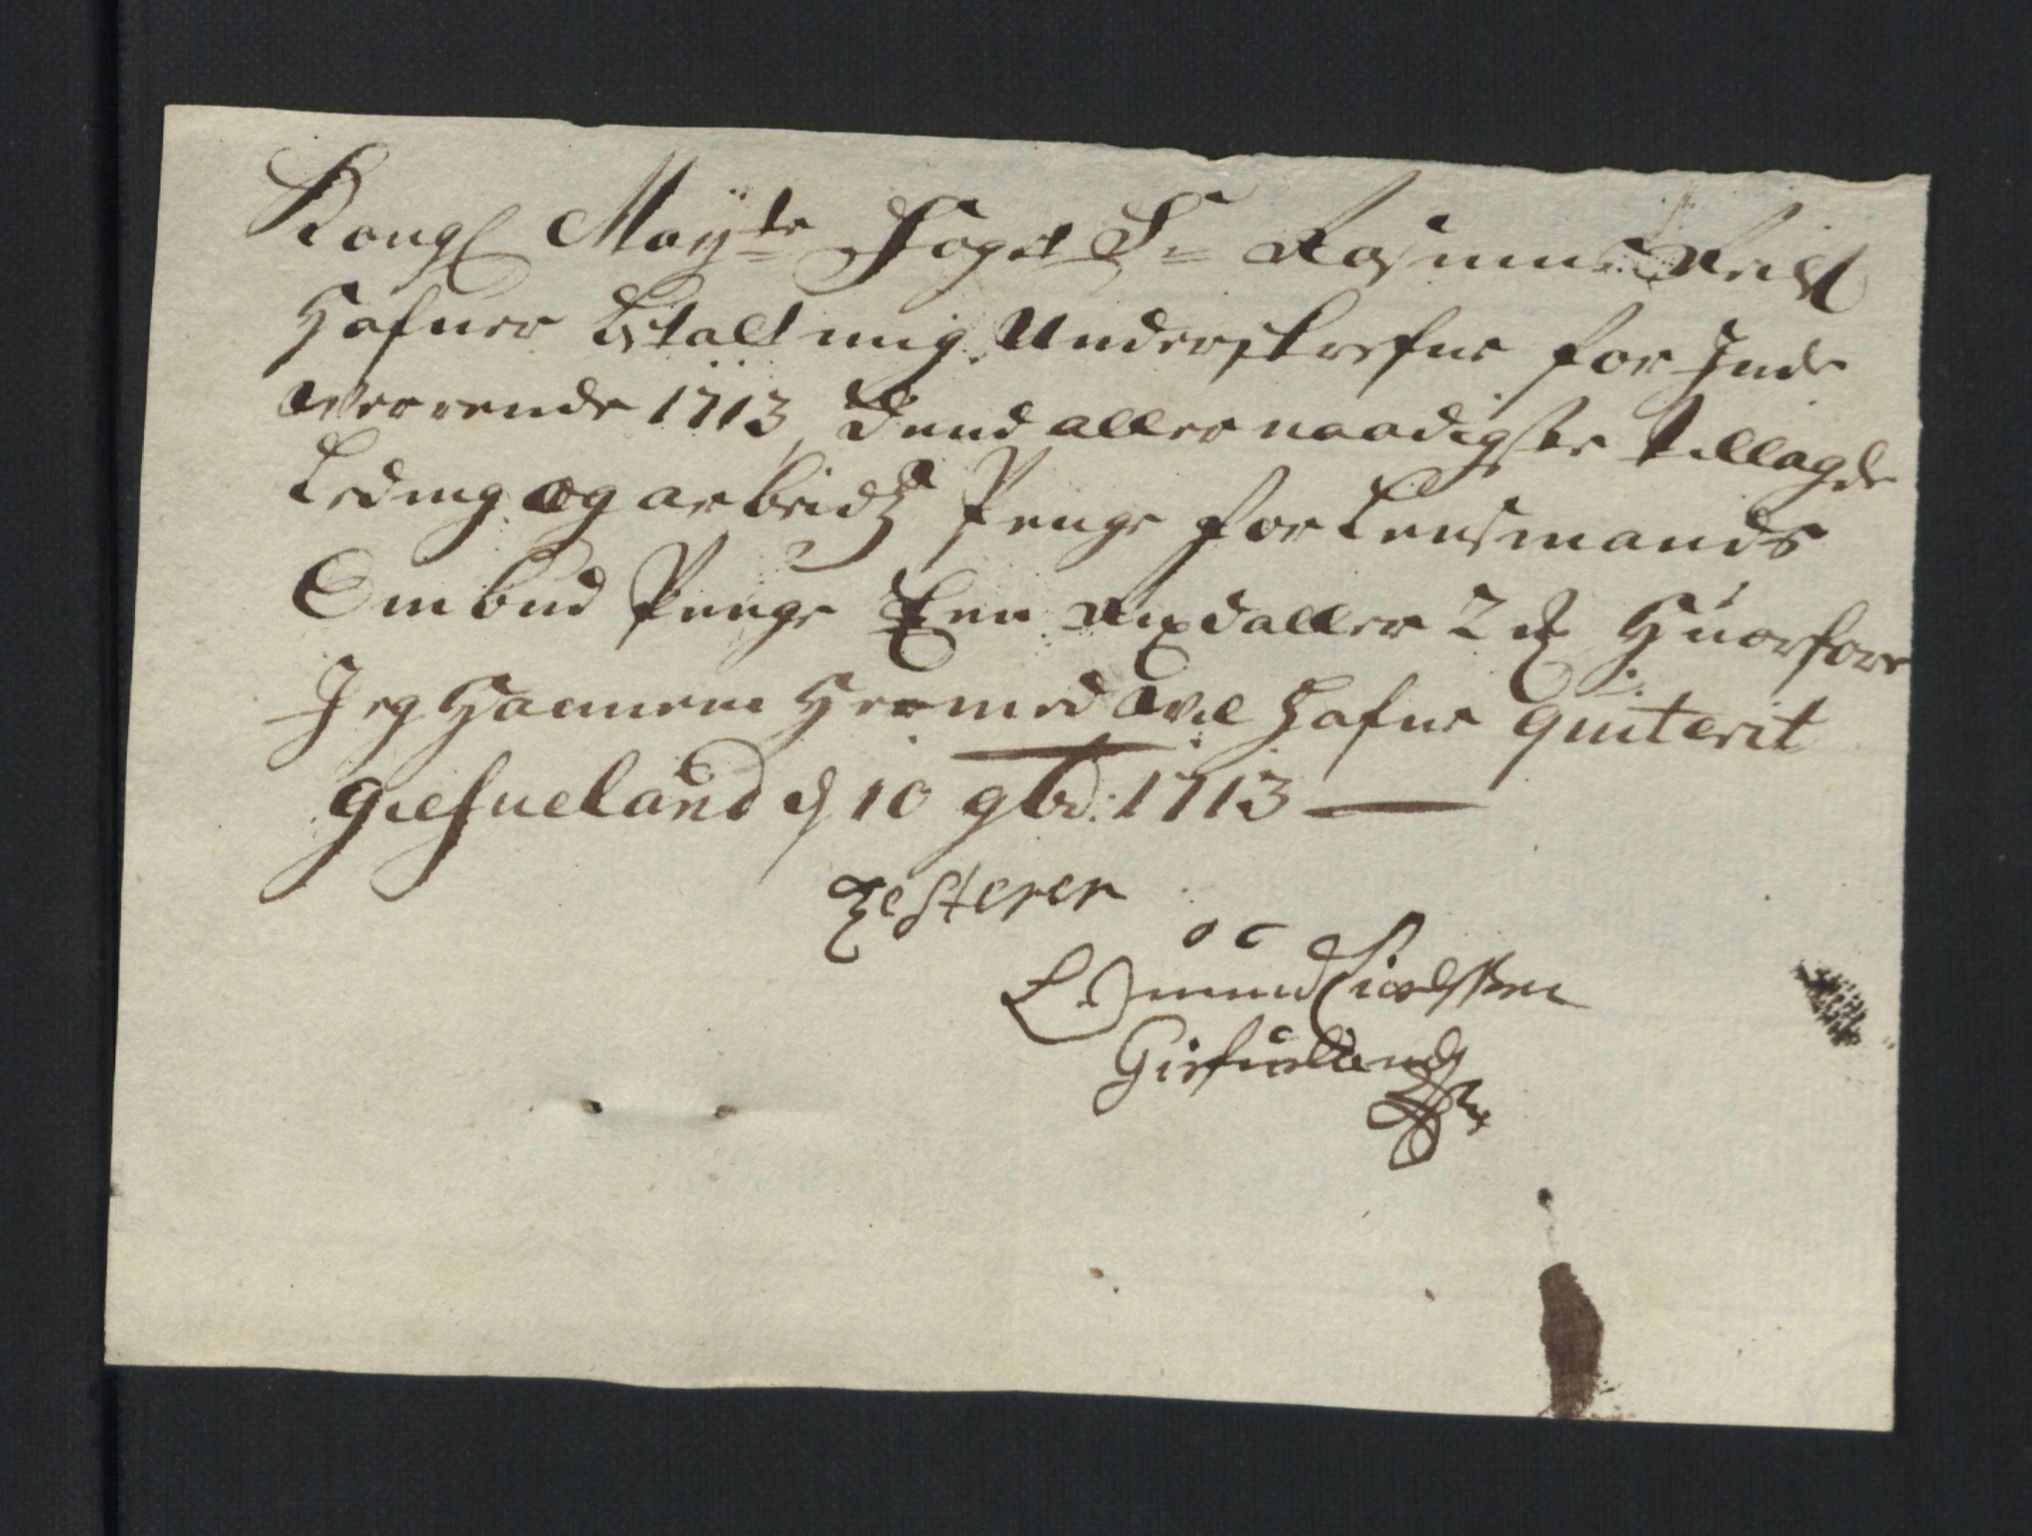 Kongl Mayts Foget Sr Rasmus Reist
Hafuer Betalt mig Underskrefne for Inde
Werende 1713 Dend allernaadigste tillagde
Leding og arbeidtz Penge for Lensmands
Ombud Penge Een Rixdaller 2 Huorfore
Jeg Hannem Hermed Vel hafue quiterit
Giefueland d 10 9br: 1713
Testerer
Giefuelland